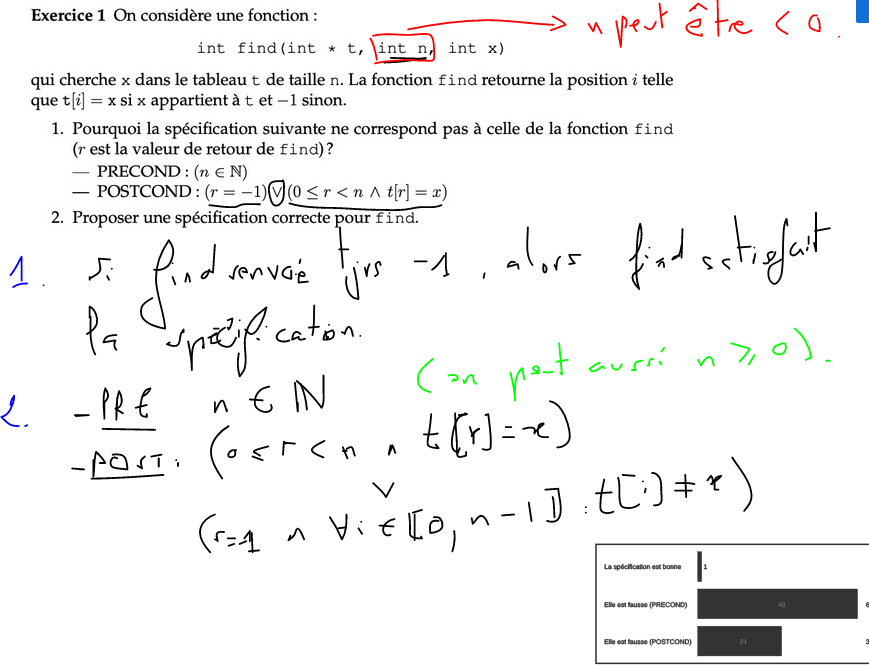 Exercice 1 On considère une fonction :
n peut être < 0.
int find(int * t, int n, int x)
qui cherche x dans le tableau t de taille n. La fonction find retourne la position i telle
que t[i] = x si x appartient à t et −1 sinon.
1. Pourquoi la spécification suivante ne correspond pas à celle de la fonction find
(r est la valeur de retour de find) ?
— PRECOND : (n ∈ ℕ)
— POSTCOND : (r = −1) ∨ (0 ≤ r < n ∧ t[r] = x)
2. Proposer une spécification correcte pour find.
1. Si find renvoie tjrs -1, alors find satisfait
la spécification.
(on peut aussi n ≥ 0).
2. - PRE n ∈ ℕ
- POST : (0 ≤ r < n ∧ t[r] = x)
∨
(r=-1 ∧ ∀i ∈ ⟦0, n-1⟧ : t[i] ≠ x)
La spécification est bonne 1
Elle est fausse (PRECOND) 40 6
Elle est fausse (POSTCOND) 21 3